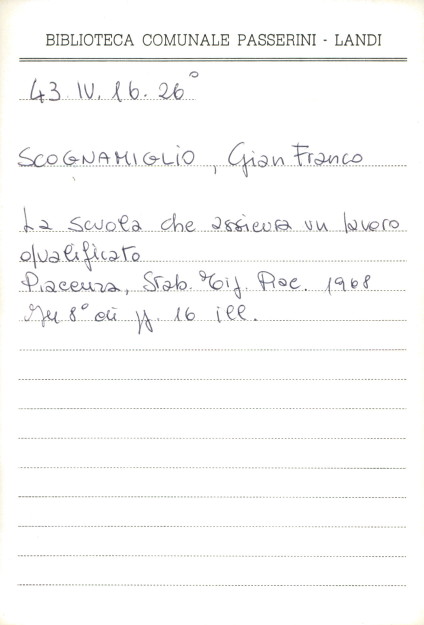 BIBLIOTECA COMUNALE PASSERINI - LANDI
43.IV.16.26°
SCOGNAMIGLIO, Gian Franco
La scuola che assicura un lavoro
qualificato
Piacenza, Stab. Tip. Piac. 1968
In 8° di pp. 16 ill.